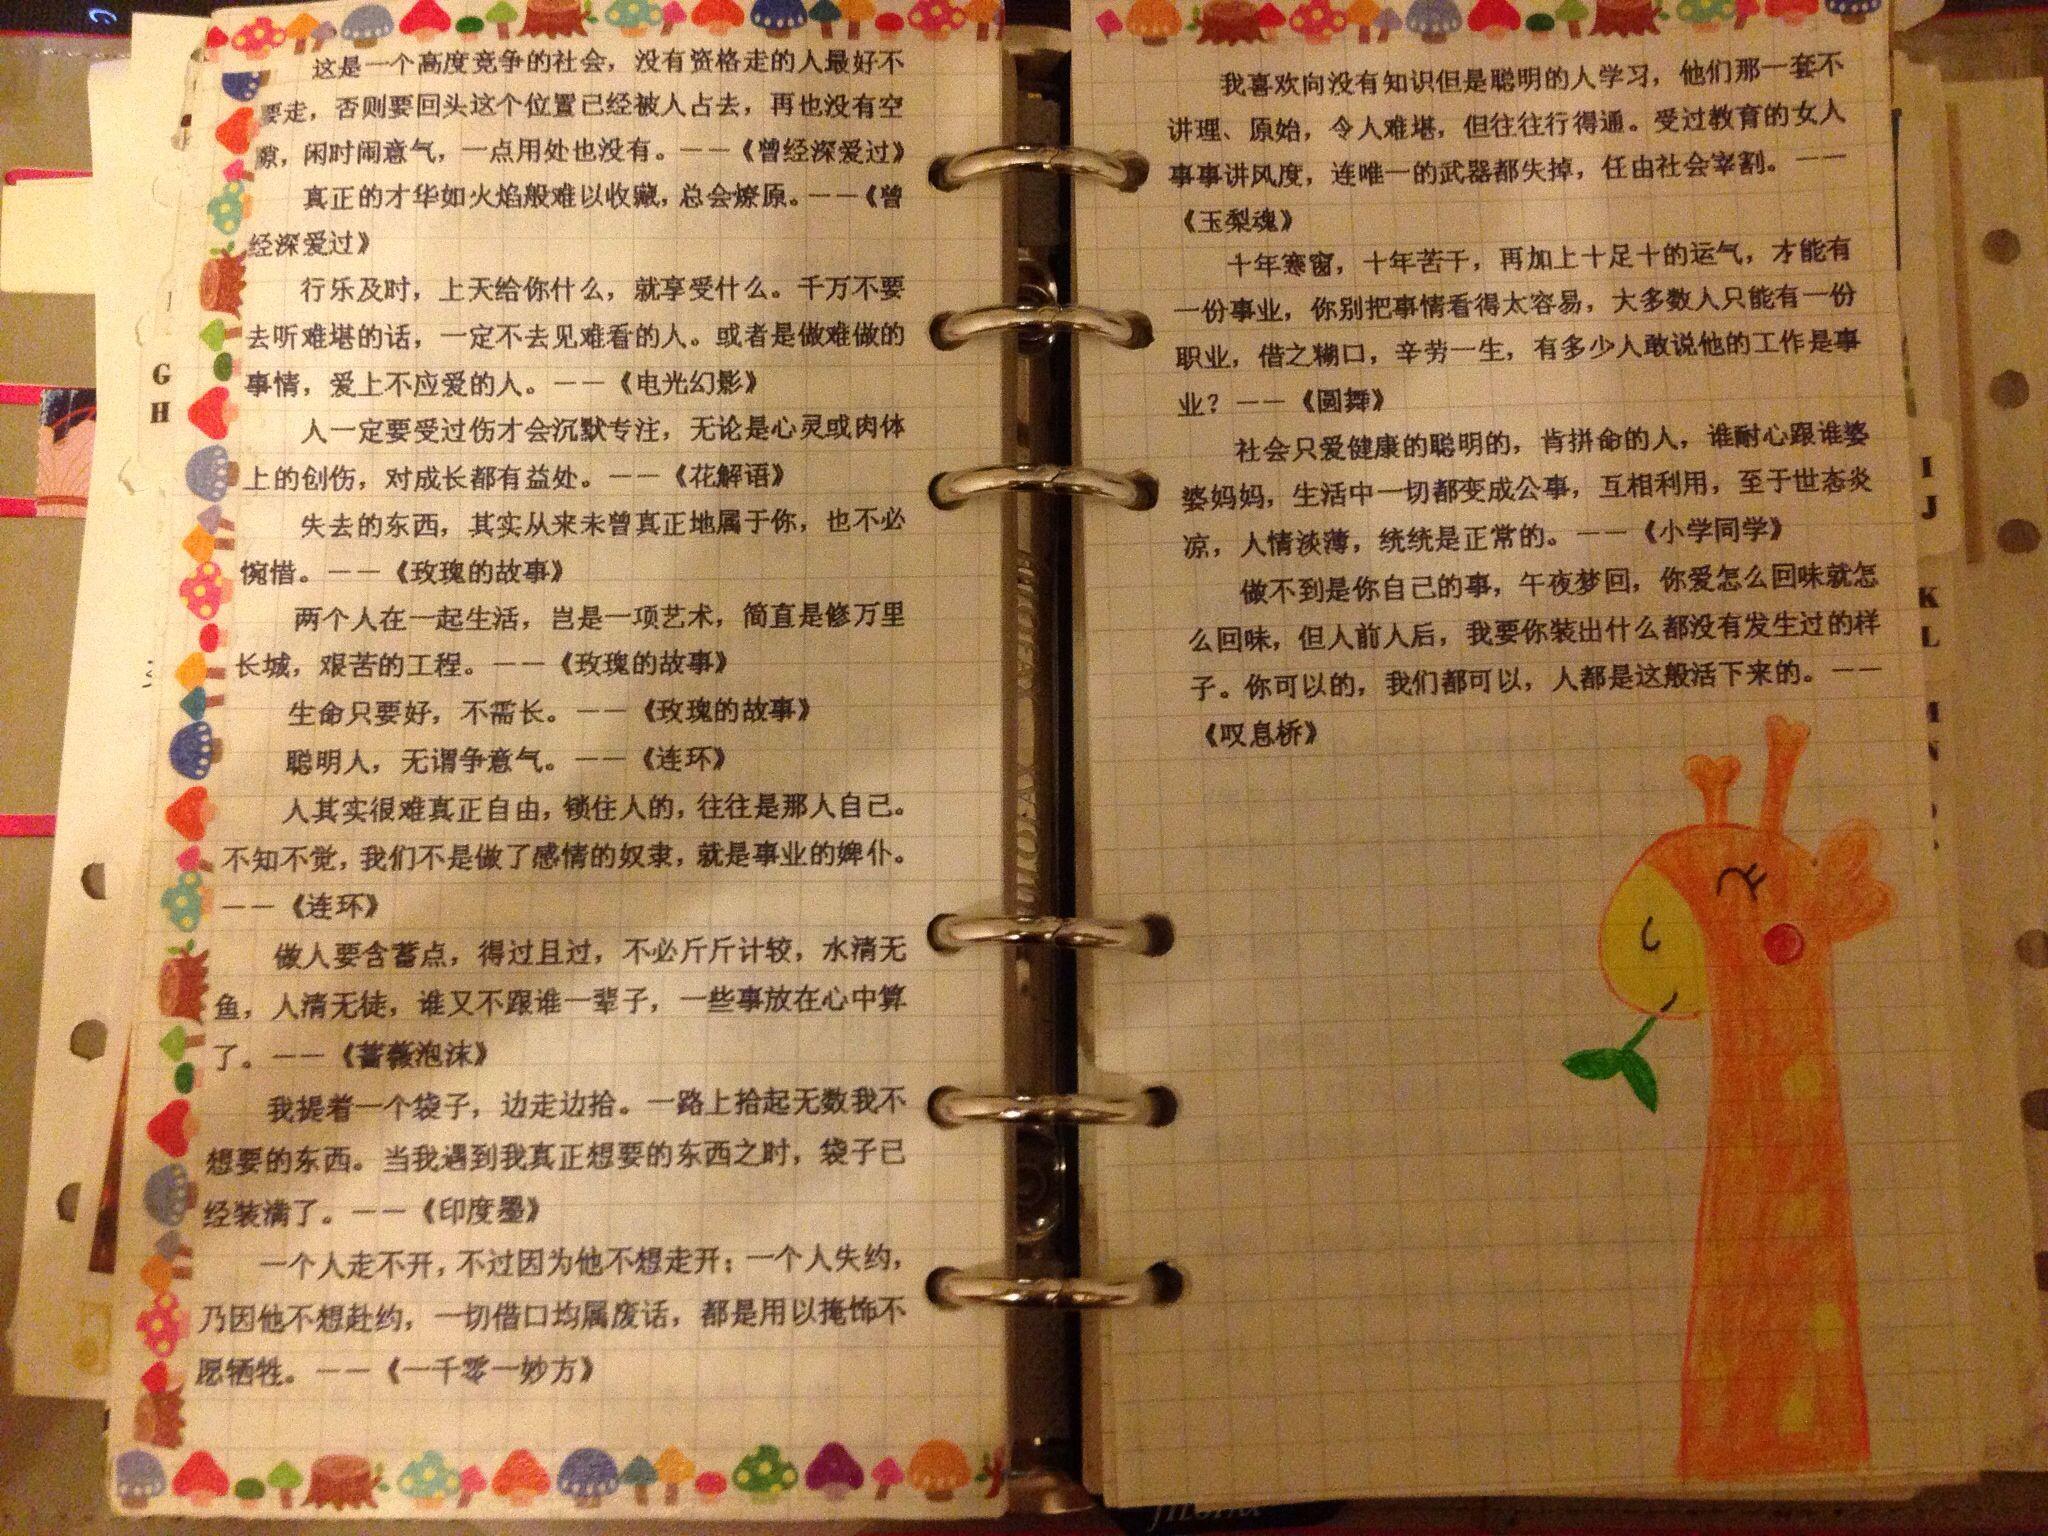 这是一个高度竞争的社会，没有资格走的人最好不
要走，否则要回头这个位置已经被人占去，再也没有空
隙，闲时闹意气，一点用处也没有。——《曾经深爱过》
真正的才华如火焰般难以收藏，总会燎原。——《曾
经深爱过》
行乐及时，上天给你什么，就享受什么。千万不要
去听难堪的话，一定不去见难看的人。或者是做难做的
事情，爱上不应爱的人。——《电光幻影》
人一定要受过伤才会沉默专注，无论是心灵或肉体
上的创伤，对成长都有益处。——《花解语》
失去的东西，其实从来未曾真正地属于你，也不必
惋惜。——《玫瑰的故事》
两个人在一起生活，岂是一项艺术，简直是修万里
长城，艰苦的工程。——《玫瑰的故事》
生命只要好，不需长。——《玫瑰的故事》
聪明人，无谓争意气。——《连环》
人其实很难真正自由，锁住人的，往往是那人自己。
不知不觉，我们不是做了感情的奴隶，就是事业的婢仆。
——《连环》
做人要含蓄点，得过且过，不必斤斤计较，水清无
鱼，人清无徒，谁又不跟谁一辈子，一些事放在心中算
了。——《蔷薇泡沫》
我提着一个袋子，边走边拾。一路上拾起无数我不
想要的东西。当我遇到我真正想要的东西之时，袋子已
经装满了。——《印度墨》
一个人走不开，不过因为他不想走开；一个人失约，
乃因他不想赴约，一切借口均属废话，都是用以掩饰不
愿牺牲。——《一千零一妙方》
我喜欢向没有知识但是聪明的人学习，他们那一套不
讲理、原始，令人难堪，但往往行得通。受过教育的女人
事事讲风度，连唯一的武器都失掉，任由社会宰割。——
《玉梨魂》
十年寒窗，十年苦干，再加上十足十的运气，才能有
一份事业，你别把事情看得太容易，大多数人只能有一份
职业，借之糊口，辛劳一生，有多少人敢说他的工作是事
业？——《圆舞》
社会只爱健康的聪明的，肯拼命的人，谁耐心跟谁婆
婆妈妈，生活中一切都变成公事，互相利用，至于世态炎
凉，人情淡薄，统统是正常的。——《小学同学》
做不到是你自己的事，午夜梦回，你爱怎么回味就怎
么回味，但人前人后，我要你装出什么都没有发生过的样
子。你可以的，我们都可以，人都是这般活下来的。——
《叹息桥》
G
H
I
J
K
L
M
N